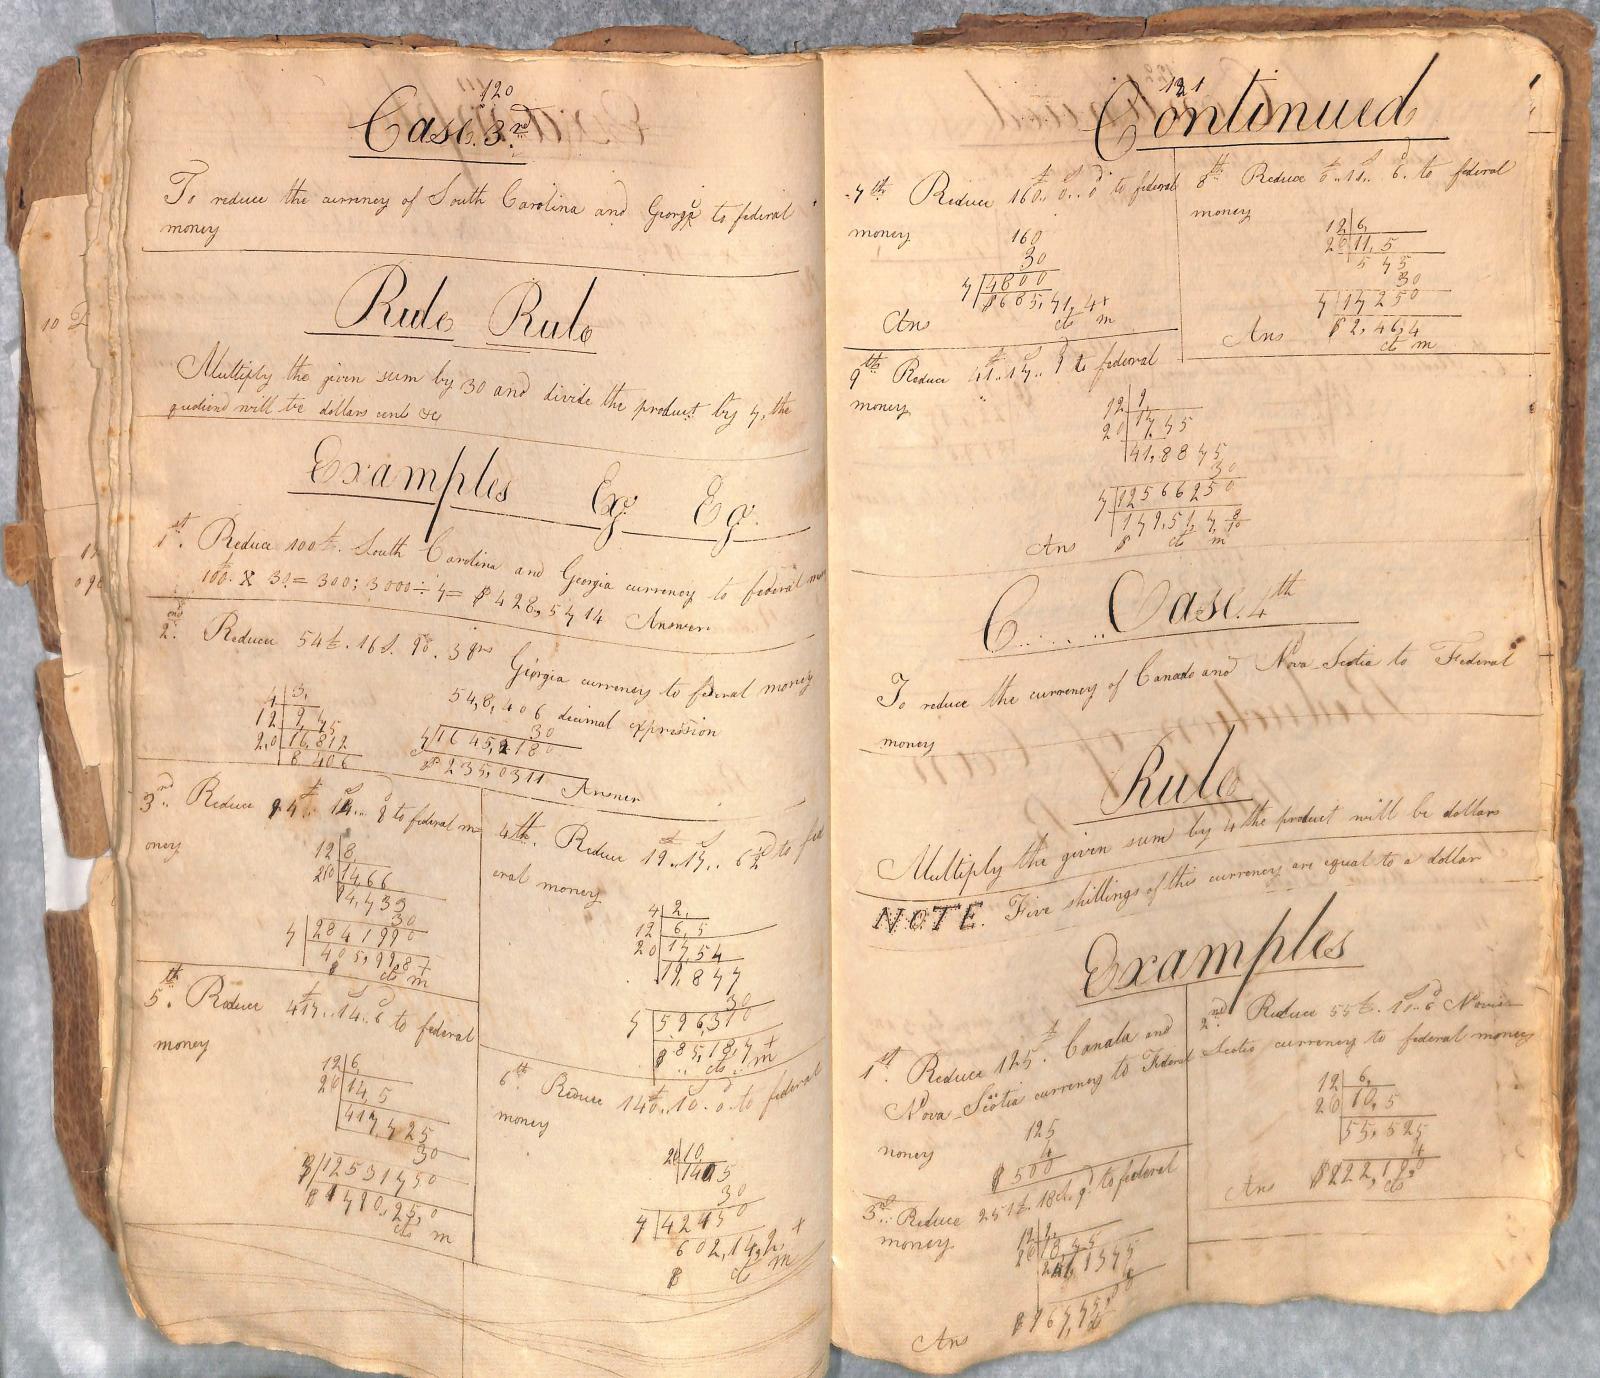 120
Case. 3.rd
To reduce the currency of South Carolina and Georgia to federal
money
Rule Rule
Multiply the given sum by 30 and divide the product by 7, the
quotiend will be dollars cents &c
Examples Ex Ex.
1st. Reduce 100£. South Carolina and Georgia currency to federal
100. X 30 = 300; 3000 ÷ 7 = $ 428,5714 Answer
2nd. Reduce 54£. 16S. 9d. 3 qrs Georgia currency to federal money
54,8,406 decimal expression
4 | 3,
12 | 9,75
2,0 | 16,812
8 406
30
7 | 1645,2180
$ 235,0311 Answer
3rd. Reduce 94£.. 14.. 8 to federal m
oney
12 | 8,
20 | 14,66
4,733
30
7 | 2841990
405,998+
$ cts m
4th. Reduce 19..17.. 6 1/2 to fed
eral money
4 | 2,
12 | 6,5
20 | 17,54
19,877
30
7 | 596310
$ 85,18,7+
cts m
5th. Reduce 417..14..6 to federal
money
12 | 6
20 | 14,5
417,725
30
7 | 12531750
$ 1790,25,0
cts m
6th Reduce 140..10..0 to federal
money
20 | 10
1405
30
7 | 42150
602,14,2+
$ cts m
121
Continued
7th Reduce 160..0..0 to federal
money
160
30
7 | 4800
$ 685,71,4+
Ans cts m
8th Reduce 0..11.. 6. to federal
money
12 | 6,
20 | 11,5
575
30
7 | 17250
Ans $ 2,46,4
cts m
9th Reduce 41..17.. 9 to federal
money
12 | 9,
20 | 17,75
41,8875
30
7 | 12566250
179,51,7 8/10
Ans $ cts m
C...... Case. 4th
To reduce the currency of Canada and Nova Scotia to Federal
money
Rule
Multiply the given sum by 4 the product will be dollars
NOTE. Five shillings of this currency are equal to a dollar
Examples
1st. Reduce 125£. Canata and
Nova Scotia currency to Federal
money
125
4
$ 500
2nd Reduce 55£. 10..6 Novia
Scotia currency to federal money
12 | 6,
20 | 10,5
55,525
4
Ans $222,10,0
cts
3rd. Reduce 251£. 18d. 9d. to federal
money
12 | 9,
20 | 18,75
Ans